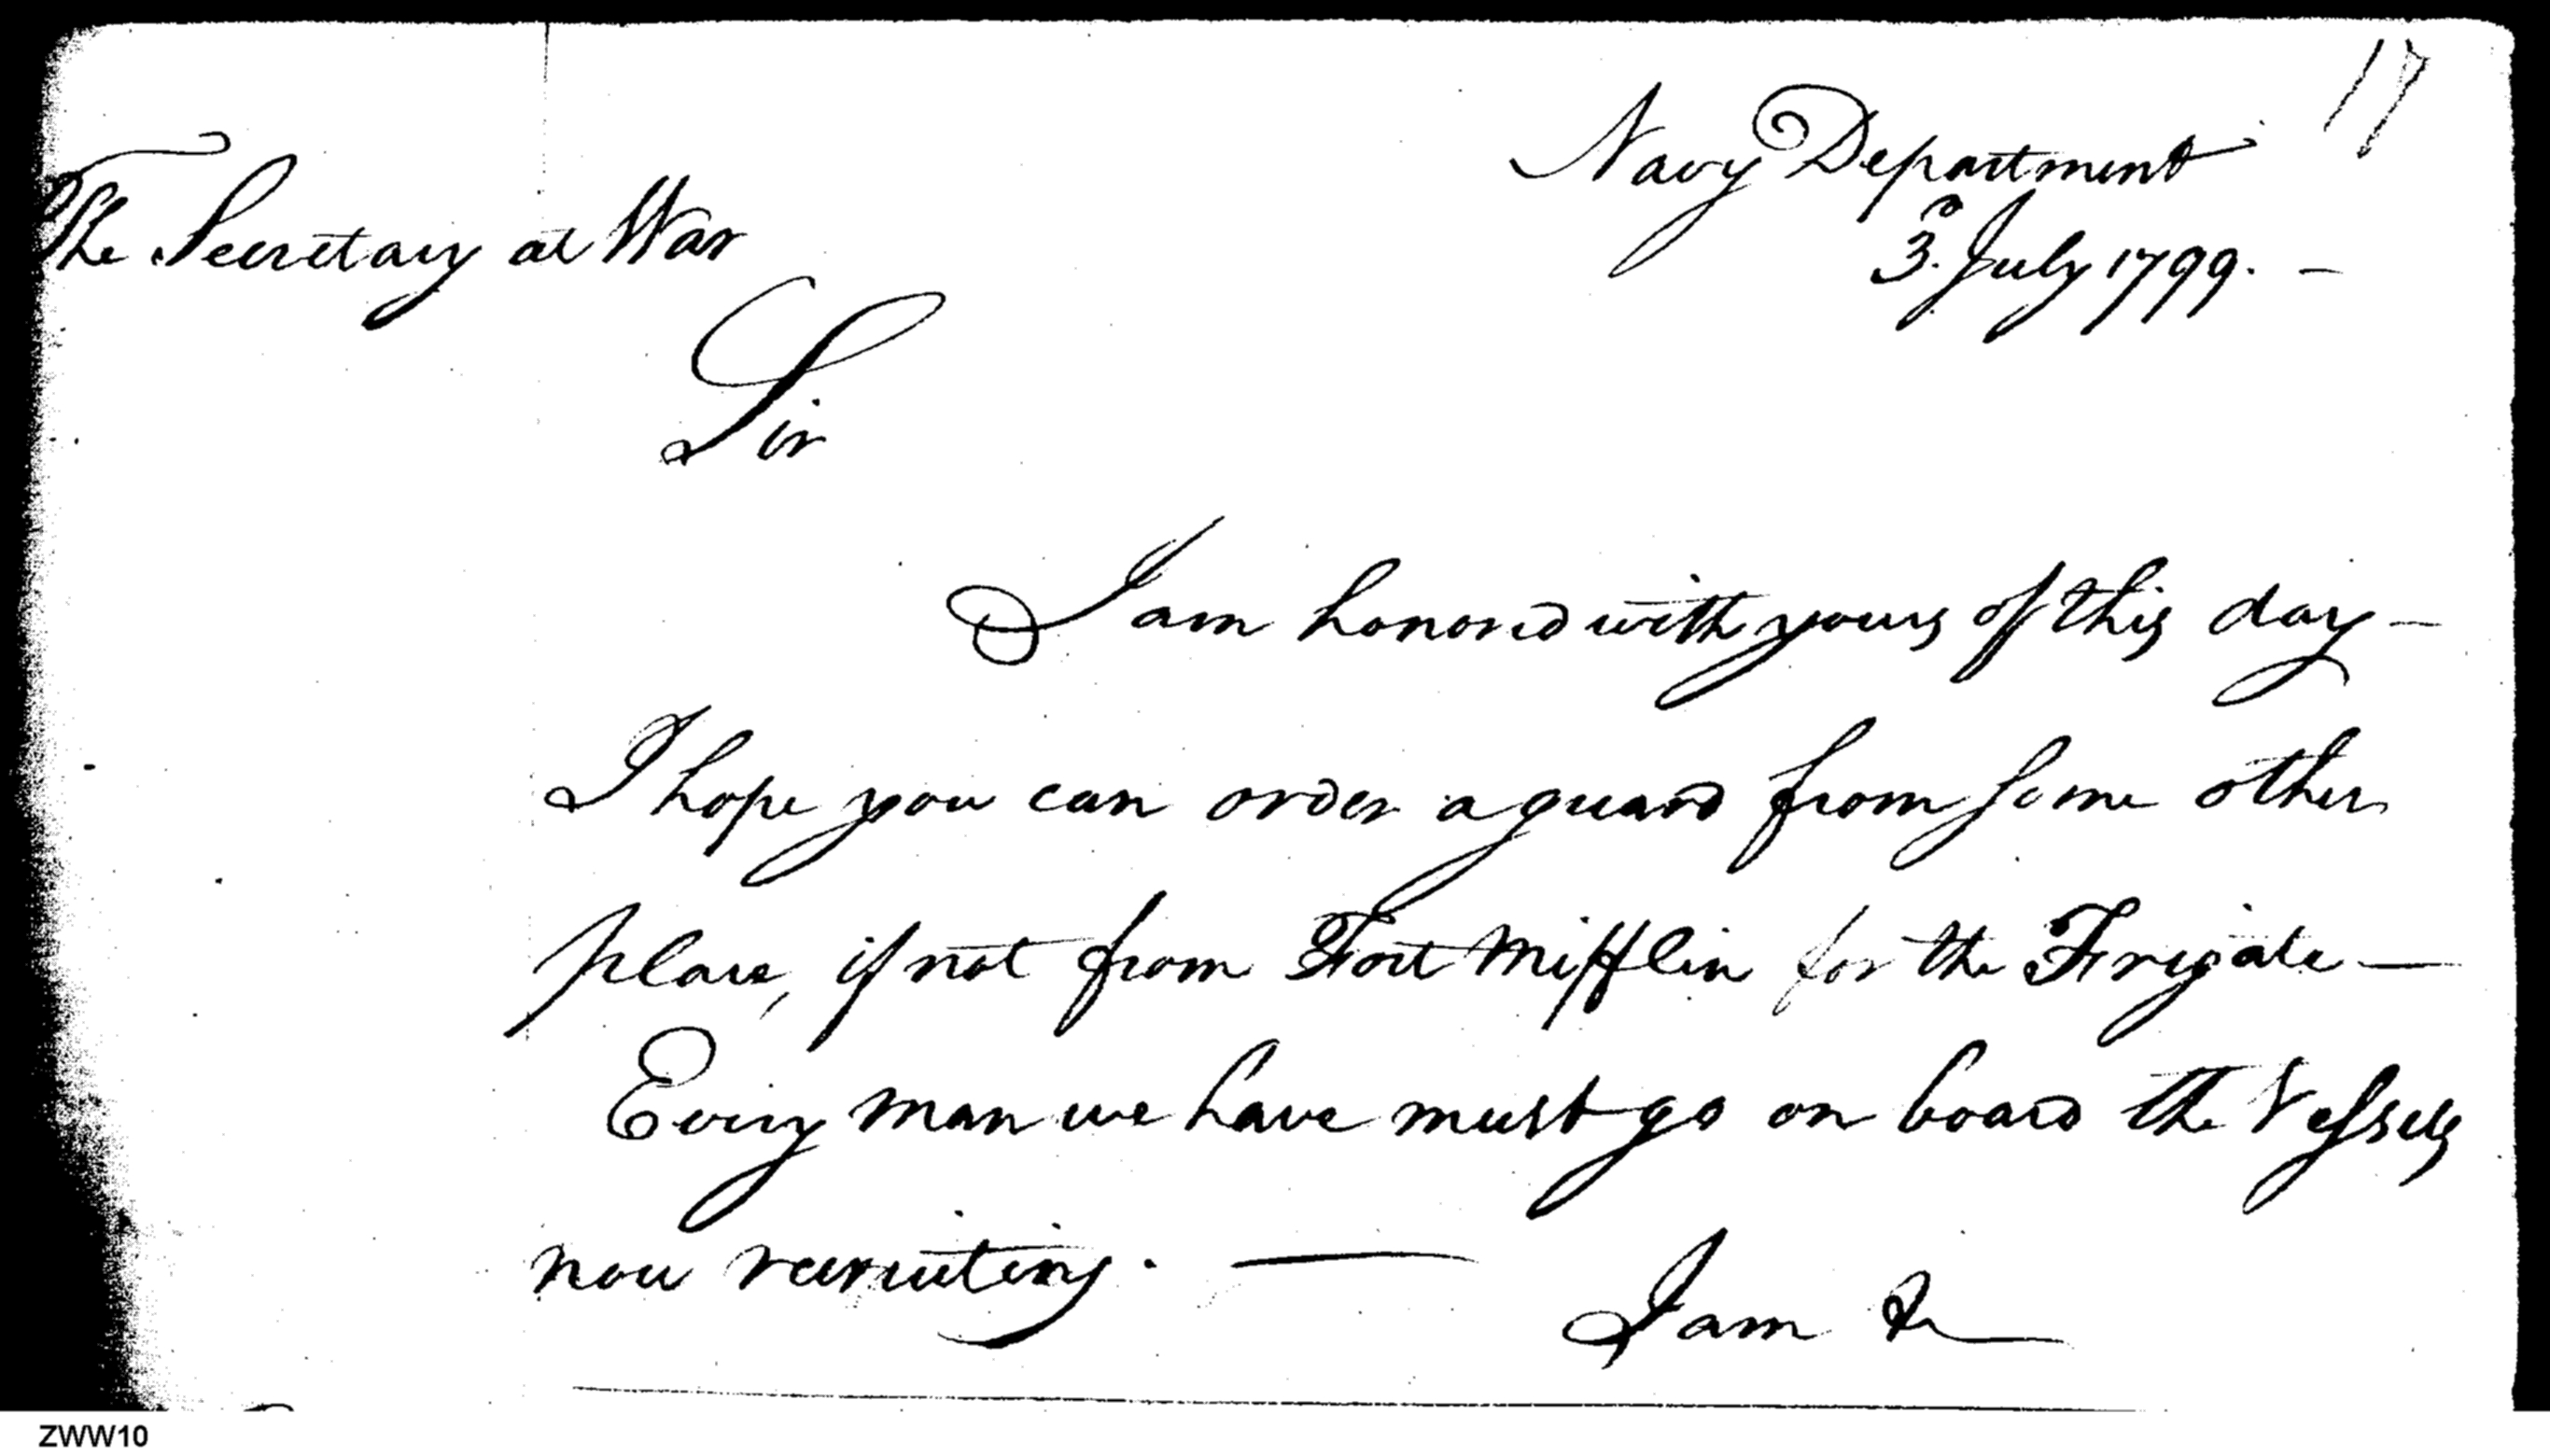 17
Navy Department
The Secretary at War
3d. July 1799. –
Sir
I am honored with yours of this day –
I hope you can order a guard from some other
place, if not from Fort Mifflin for the Frigate —
Every man we have must go on board the Vessels
now recruiting. —
I am &
ZWW10